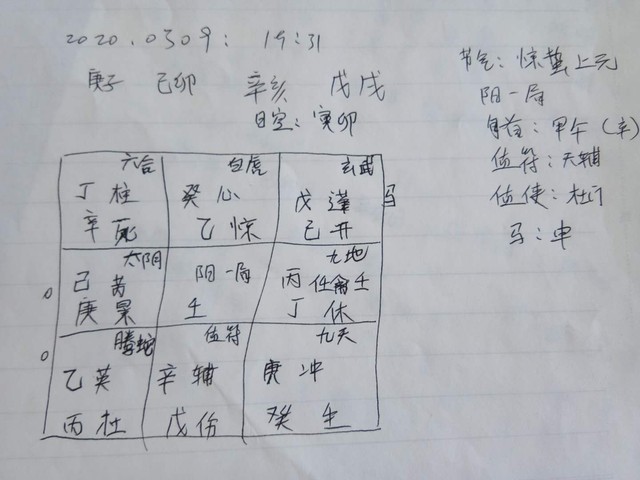 2020.0309: 19:31
庚子 己卯 辛亥 戊戌
日空: 寅卯
节气: 惊蛰上元
阳一局
旬首: 甲午(辛)
值符: 天辅
值使: 杜门
马: 申
六合
丁 柱
辛 死
白虎
癸 心
乙 惊
玄武
戊 蓬
己 开
马
太阴
己 芮
庚 景
阳一局
壬
九地
丙 任禽壬
丁 休
螣蛇
乙 英
丙 杜
值符
辛 辅
戊 伤
九天
庚 冲
癸 生
0
0